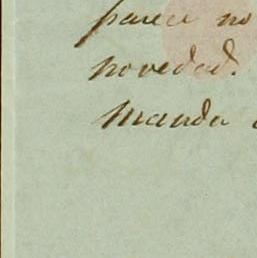 parece no
novedad.
Manda